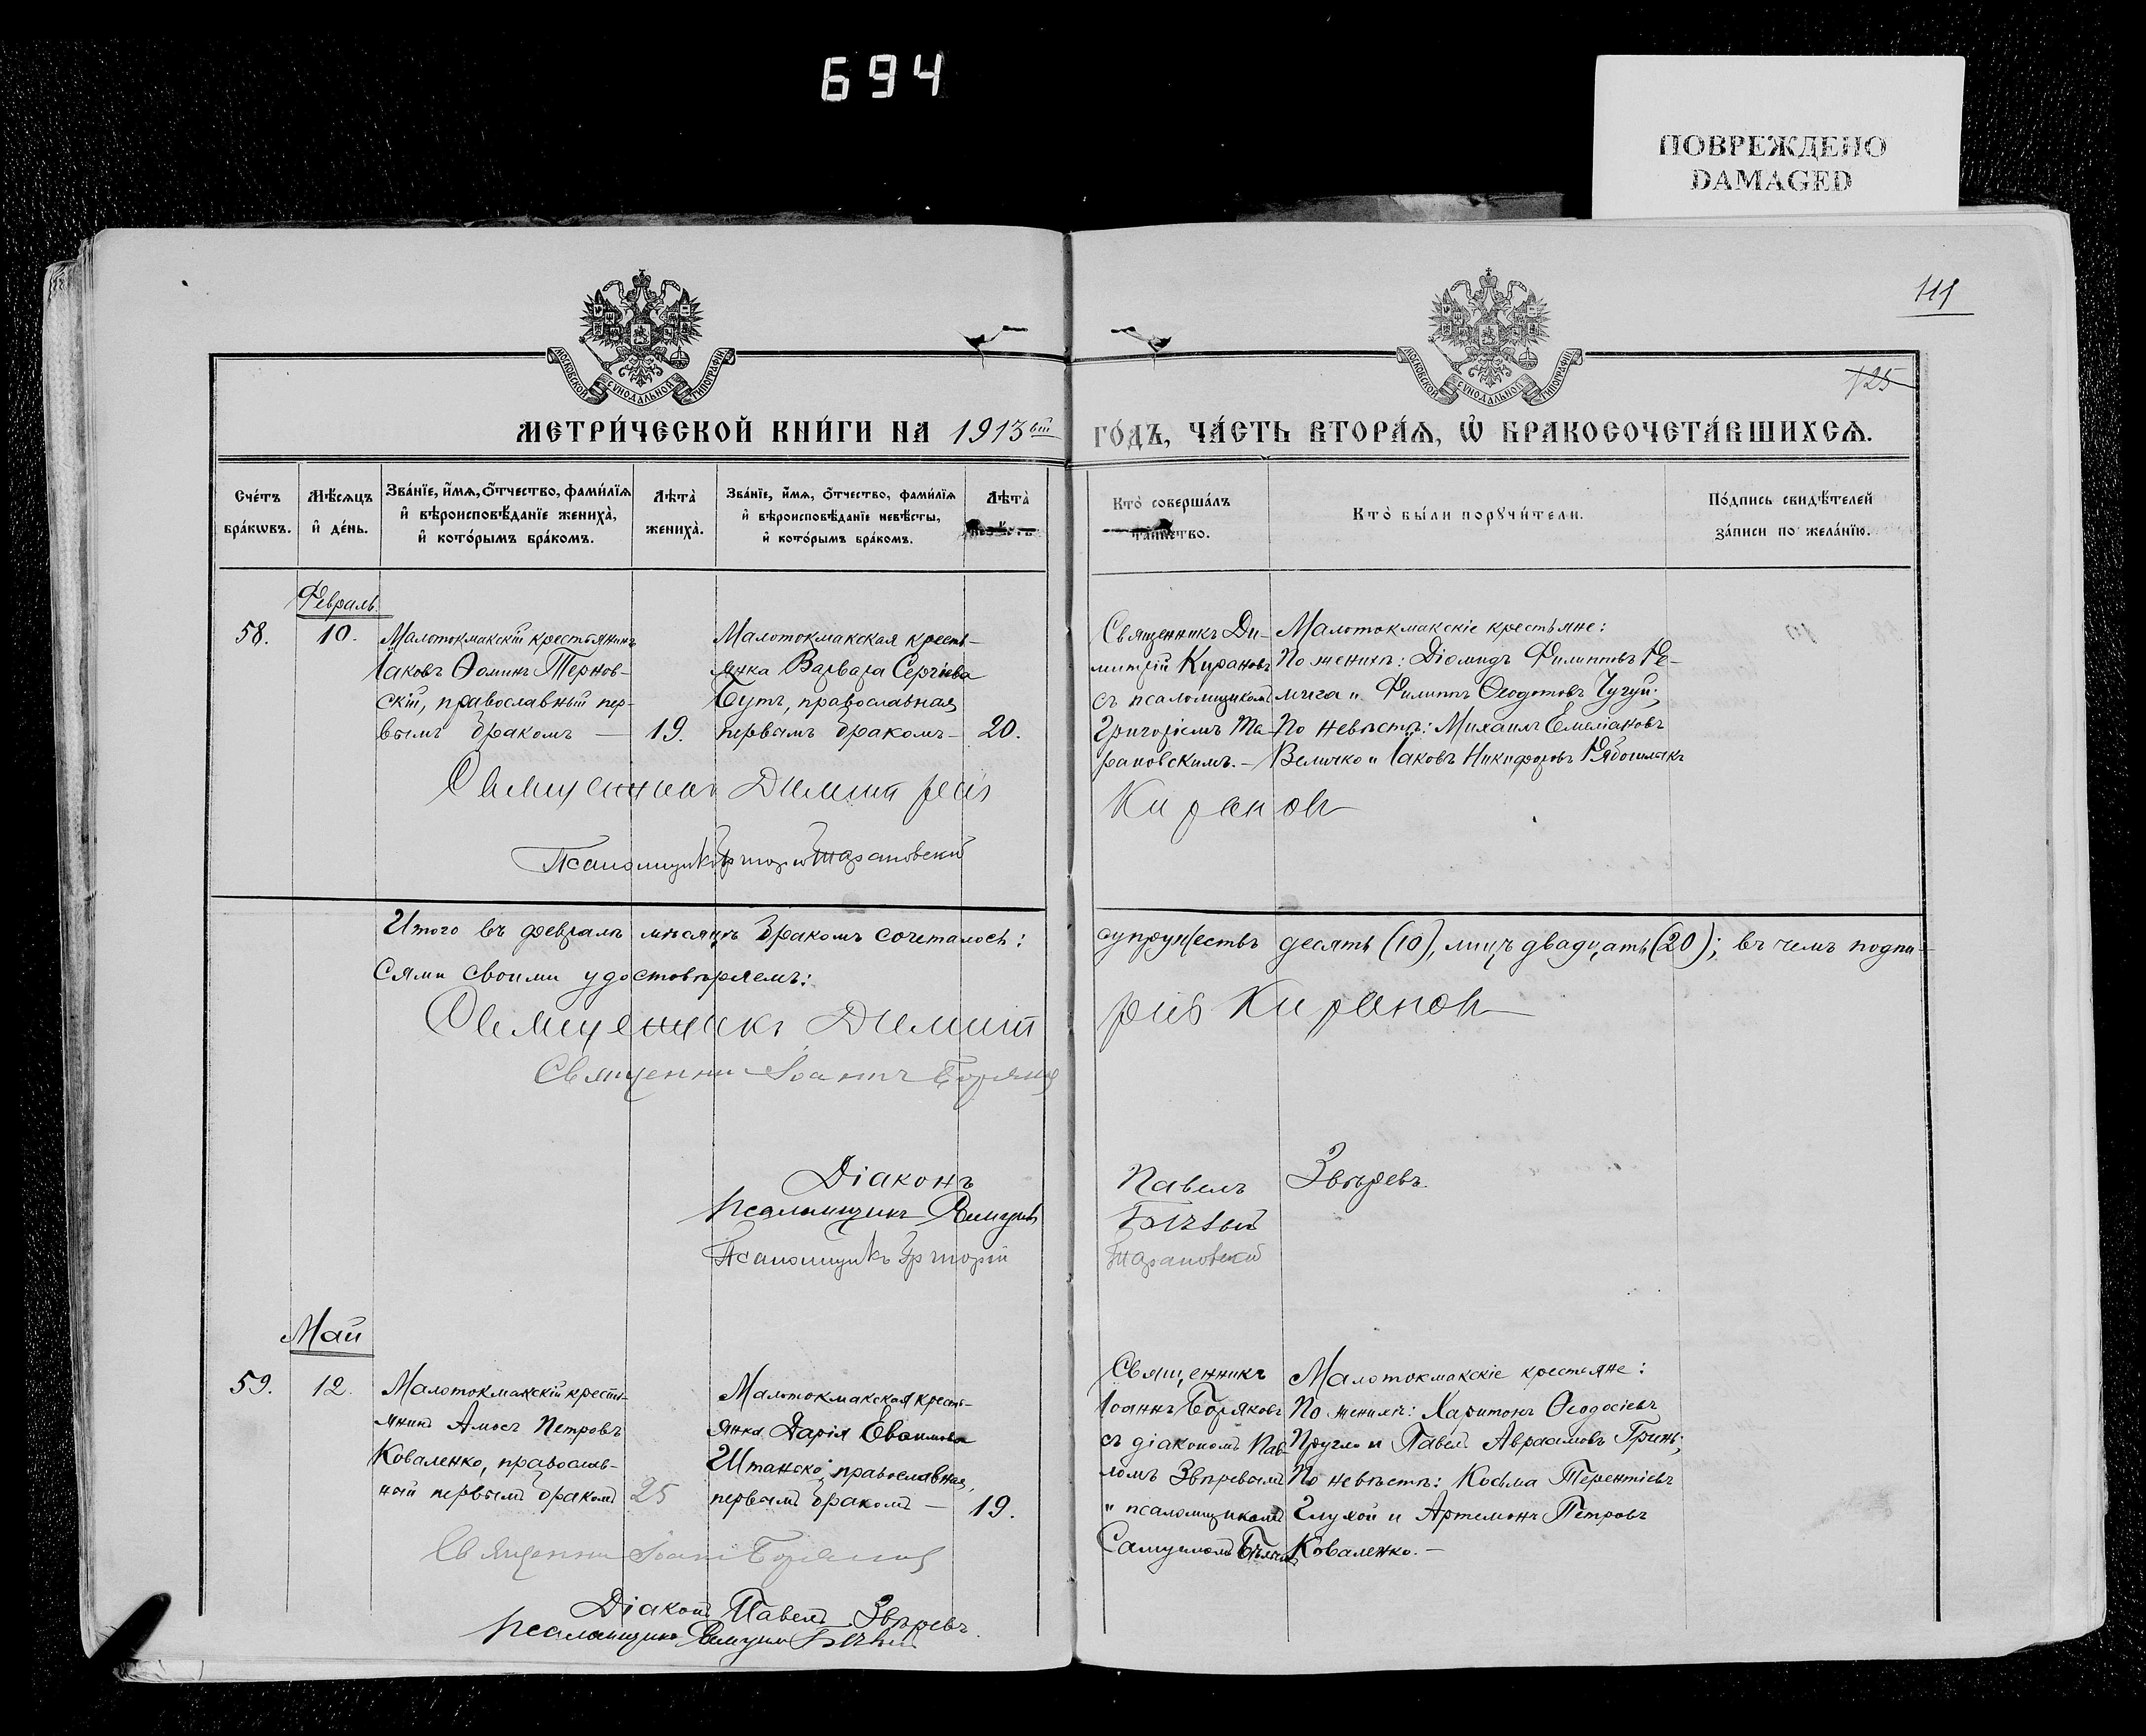 694
ПОВРЕЖДЕНО
DAMAGED
111
125
МОСКОВСКОЙ СѴНОДАЛЬНОЙ ТИПОГРАФІИ
МОСКОВСКОЙ СѴНОДАЛЬНОЙ ТИПОГРАФІИ
МЕТРИ́ЧЕСКОЙ КНИ́ГИ НА 1913ый ГО́ДЪ, ЧА́СТЬ ВТОРА́Ѧ, Ѽ БРАКОСОЧЕТА́ВШИХСѦ.
Сче́тъ бра́кѡвъ.
Мѣ́сѧцъ и҆ де́нь.
Зва́нїе, и҆́мѧ, ѻ҆́тчество, фами́лїѧ
и҆ вѣроисповѣ́данїе жениха̀,
и҆ кото́рымъ бра́комъ.
Лѣта̀ жениха̀.
Зва́нїе, и҆́мѧ, ѻ҆́тчество, фами́лїѧ
и҆ вѣроисповѣ́данїе невѣ́сты,
и҆ кото́рымъ бра́комъ.
Лѣта̀
Кто̀ соверша́лъ
та́инство.
Кто̀ бы́ли порꙋчи́тели.
По́дпись свидѣ́телей
за́писи по жела́нїю.
Февраль.
58.
10.
Малотокмакскій крестьянинъ
Іаковъ Ѳоминъ Тернов-
скій, православный пер-
вымъ бракомъ —
19.
Малотокмакская кресть-
янка Варвара Сергіева
Бутъ, православная
первымъ бракомъ —
20.
Священникъ Ди-
митрій Кирановъ
съ псаломщикомъ
Григоріемъ Та-
рановскимъ. —
Малотокмакскіе крестьяне:
По женихѣ: Діомидъ Филипповъ Ре-
мига и Филиппъ Ѳеодотовъ Чугуй;
По невѣстѣ: Михаилъ Емеліановъ
Величко и Іаковъ Никифоровъ Рябошлыкъ
Священникъ Димитрій Кирановъ
Псаломщикъ Григорій Тарановскій
Итого въ февралѣ мѣсяцѣ бракомъ сочеталось: супружествъ десять (10), лицъ двадцать (20); въ чемъ подпи-
сями своими удостовѣряемъ:
Священникъ Димитрій Кирановъ
Священникъ Іоаннъ Боряковъ
Діаконъ Павелъ Звѣревъ.
Псаломщикъ Самуилъ
Псаломщикъ Григорій Тарановскій
Май
59.
12.
Малотокмакскій кресть-
янинъ Амосъ Петровъ
Коваленко, православ-
ный первымъ бракомъ
25
Малотокмакская кресть-
янка Дарія Евѳимова
Штанько, православная,
первымъ бракомъ —
19.
Священникъ
Іоаннъ Боряковъ
съ діакономъ Пав-
ломъ Звѣревымъ
и псаломщикомъ
Самуиломъ
Малотокмакскіе крестьяне:
По женихѣ: Харитонъ Ѳеодосіевъ
Пругло и Павелъ Авраамовъ Гринь;
По невѣстѣ: Косьма Терентіевъ
Глухой и Артемонъ Петровъ
Коваленко. —
Священникъ Іоаннъ Боряковъ
Діаконъ Павелъ Звѣревъ.
Псаломщикъ Самуилъ